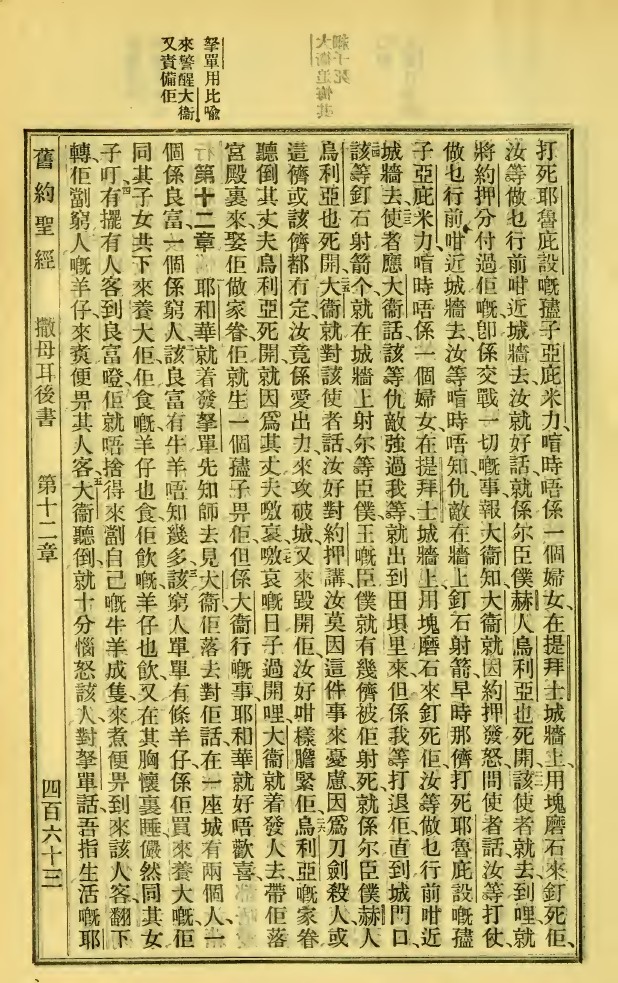 拏單用比喩
來警醒大衞
又責備佢
打死耶魯庇設嘅孻子亞庇米力喧時唔係一個婦女在提拜士城牆上用塊磨石來釘死佢
汝等做乜行前咁近城牆去汝就好話就係尔臣僕赫人烏利亞也死開該使者就去到哩就
將約押分付過佢嘅卽係交戰一切嘅事報大衞知大衞就因約押發怒問使者話汝等打仗
做乜行前咁近城牆去汝等喧時唔知仇敵在牆上釘石射箭早時那儕打死耶魯庇設嘅孻
子亞庇米力喧時唔係一個婦女在提拜士城牆上用塊磨石來釘死佢汝等做乜行前咁近
城牆去使者應大衞話該等仇敵強過我等就出到田垻里來但係我等打退佢直到城門口
該等釘石射箭个就在城牆上射尔等臣僕王嘅臣僕就有幾儕被佢射死就係尔臣僕赫人
烏利亞也死開大衞就對該使者話汝好對約押講汝莫因這件事來憂慮因爲刀劍殺人或
這儕或該儕都有定汝竟係愛出力來攻破城又來毀開佢汝好咁樣膽緊佢烏利亞嘅家眷
聽倒其丈夫烏利亞死開就因爲其丈夫噭哀噭哀嘅日子過開哩大衞就着發人去帶佢落
宮殿裏來娶佢做家眷佢就生一個孻子畀佢但係大衞行嘅事耶和華就好唔歡喜
第十二章 耶和華就着發拏單先知師去見大衞佢落去對佢話在一座城有兩個人一
個係良富一個係窮人該良富有牛羊唔知幾多該窮人單單有條羊仔係佢買來養大嘅佢
同其子女共下來養大佢佢食嘅羊仔也食佢飮嘅羊仔也飮又在其胸懷裏睡儼然同其女
子叮有擺有人客到良富嶝佢就唔捨得來劏自己嘅牛羊成隻來煮便畀到來該人客翻下
轉佢劏窮人嘅羊仔來煮便畀其人客大衞聽倒就十分惱怒該人對拏單話吾指生活嘅耶
舊約聖經 撒母耳後書 第十二章 四百六十三